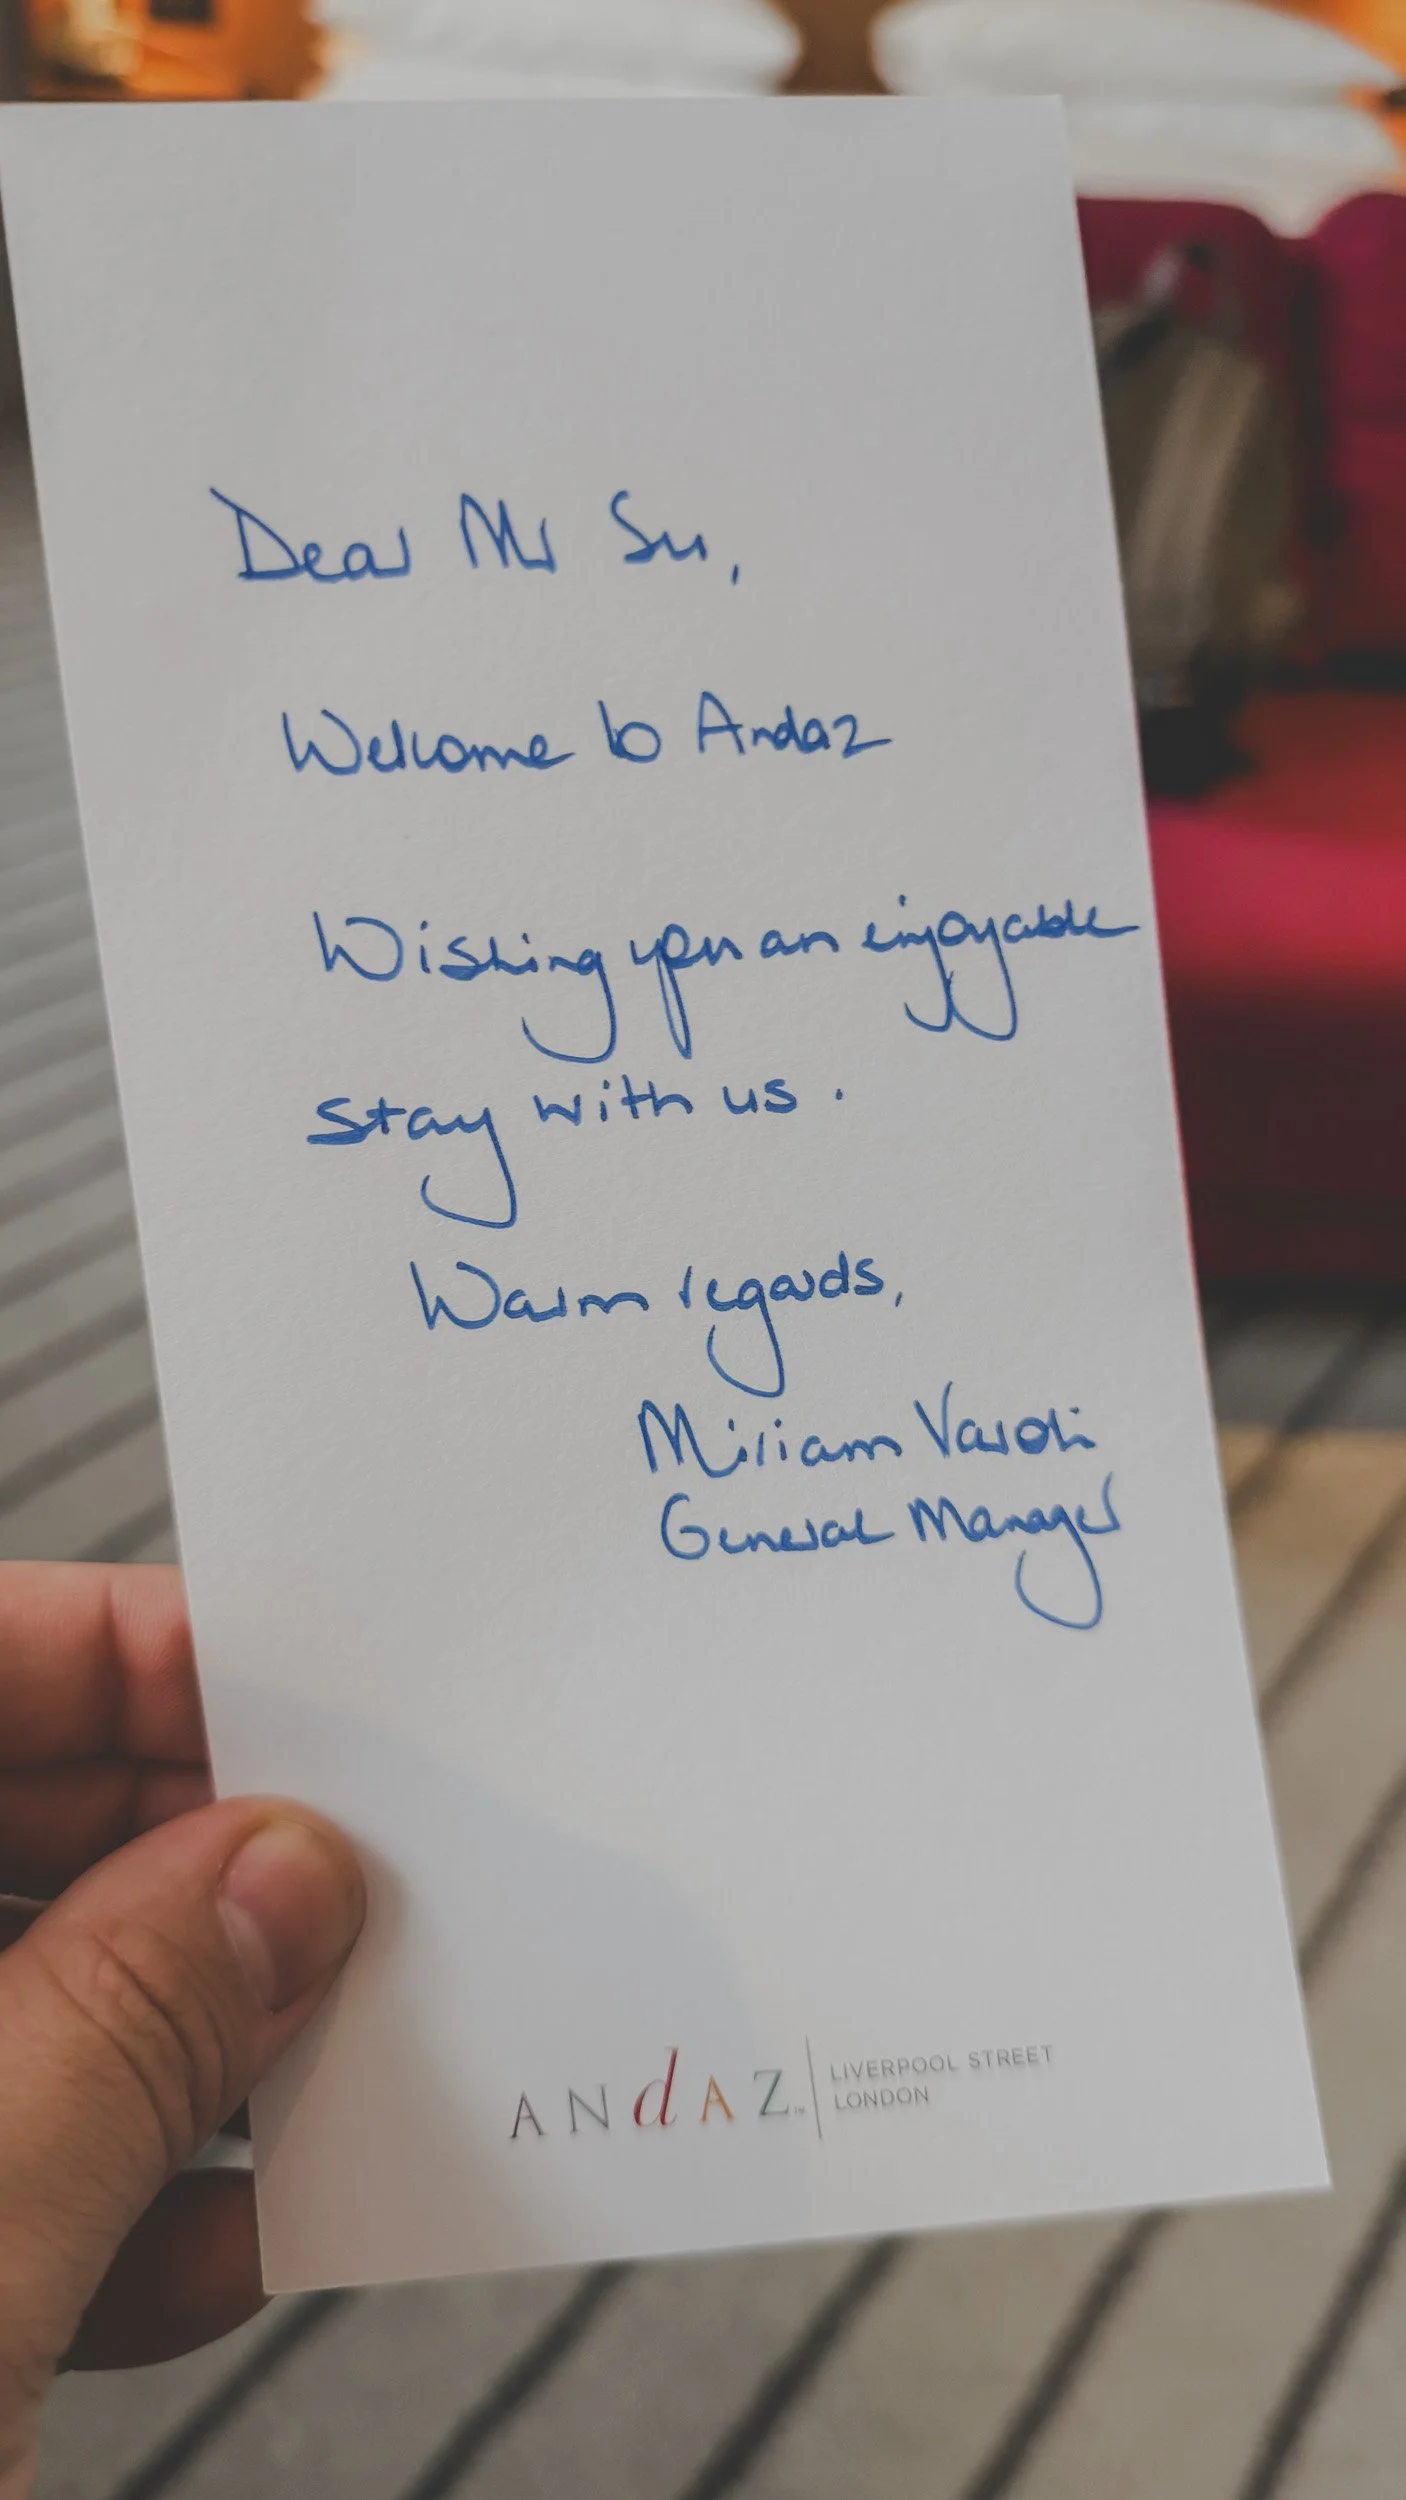 Dear Mr Su,
Welcome to Andaz
Wishing you an enjoyable
stay with us.
Warm regards,
Miriam Varoli
General Manager
ANdAZ™
LIVERPOOL STREET
LONDON